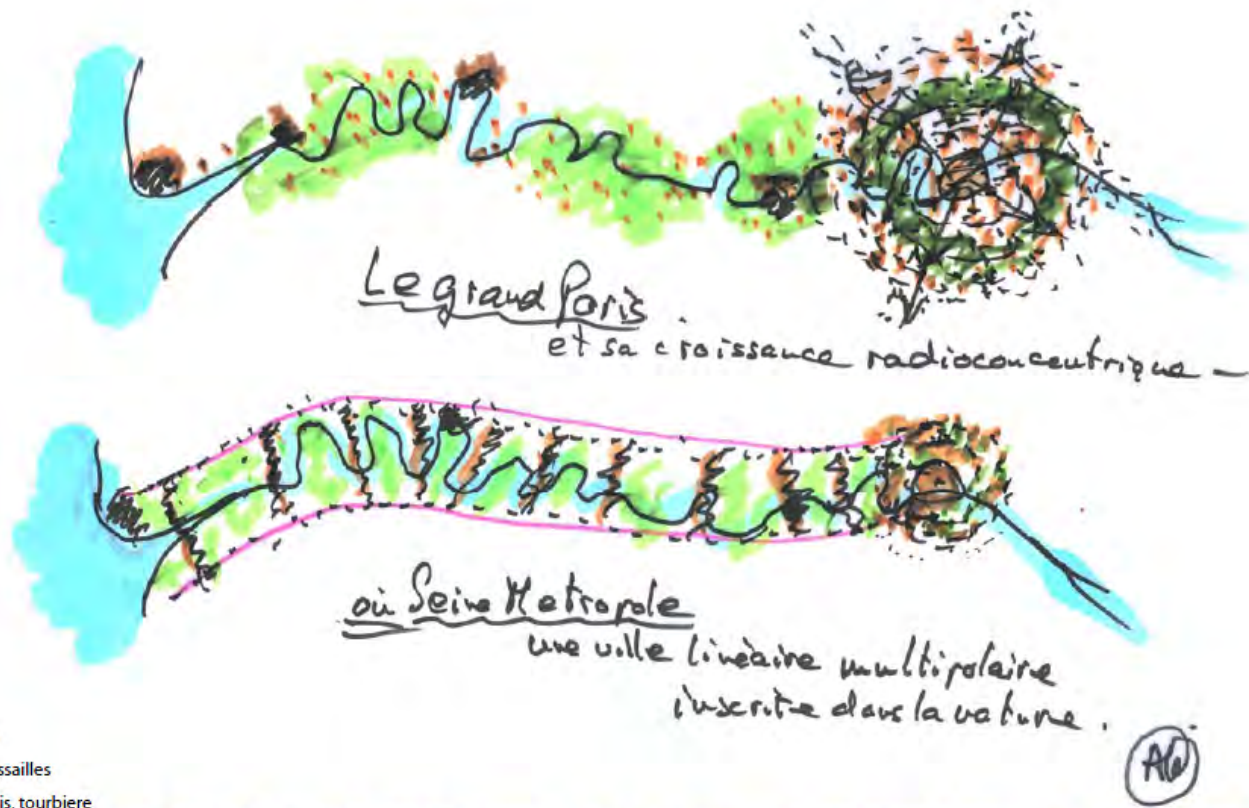 Le grand Paris
et sa croissance radioconcentrique -
où Seine Metropole
une ville linéaire multipolaire
inscrite dans la nature.
ssailles
is, tourbiere